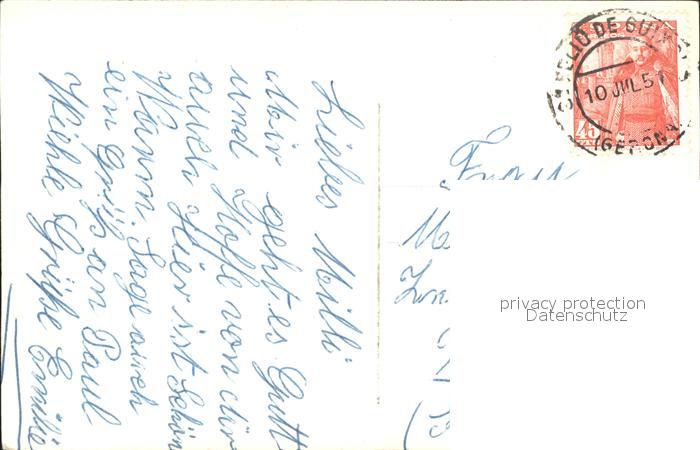 Liebes Milli
Mir geht es Gutt
und Hoffe von dir
auch Hier ist Schön
Warm. Sage auch
ein Grüß an Paul
Viehle Grüße Emilie
Frau
S. FELIU DE GUIXOLS
10 JUL 5
(GERONA)
45
privacy protection
Datenschutz